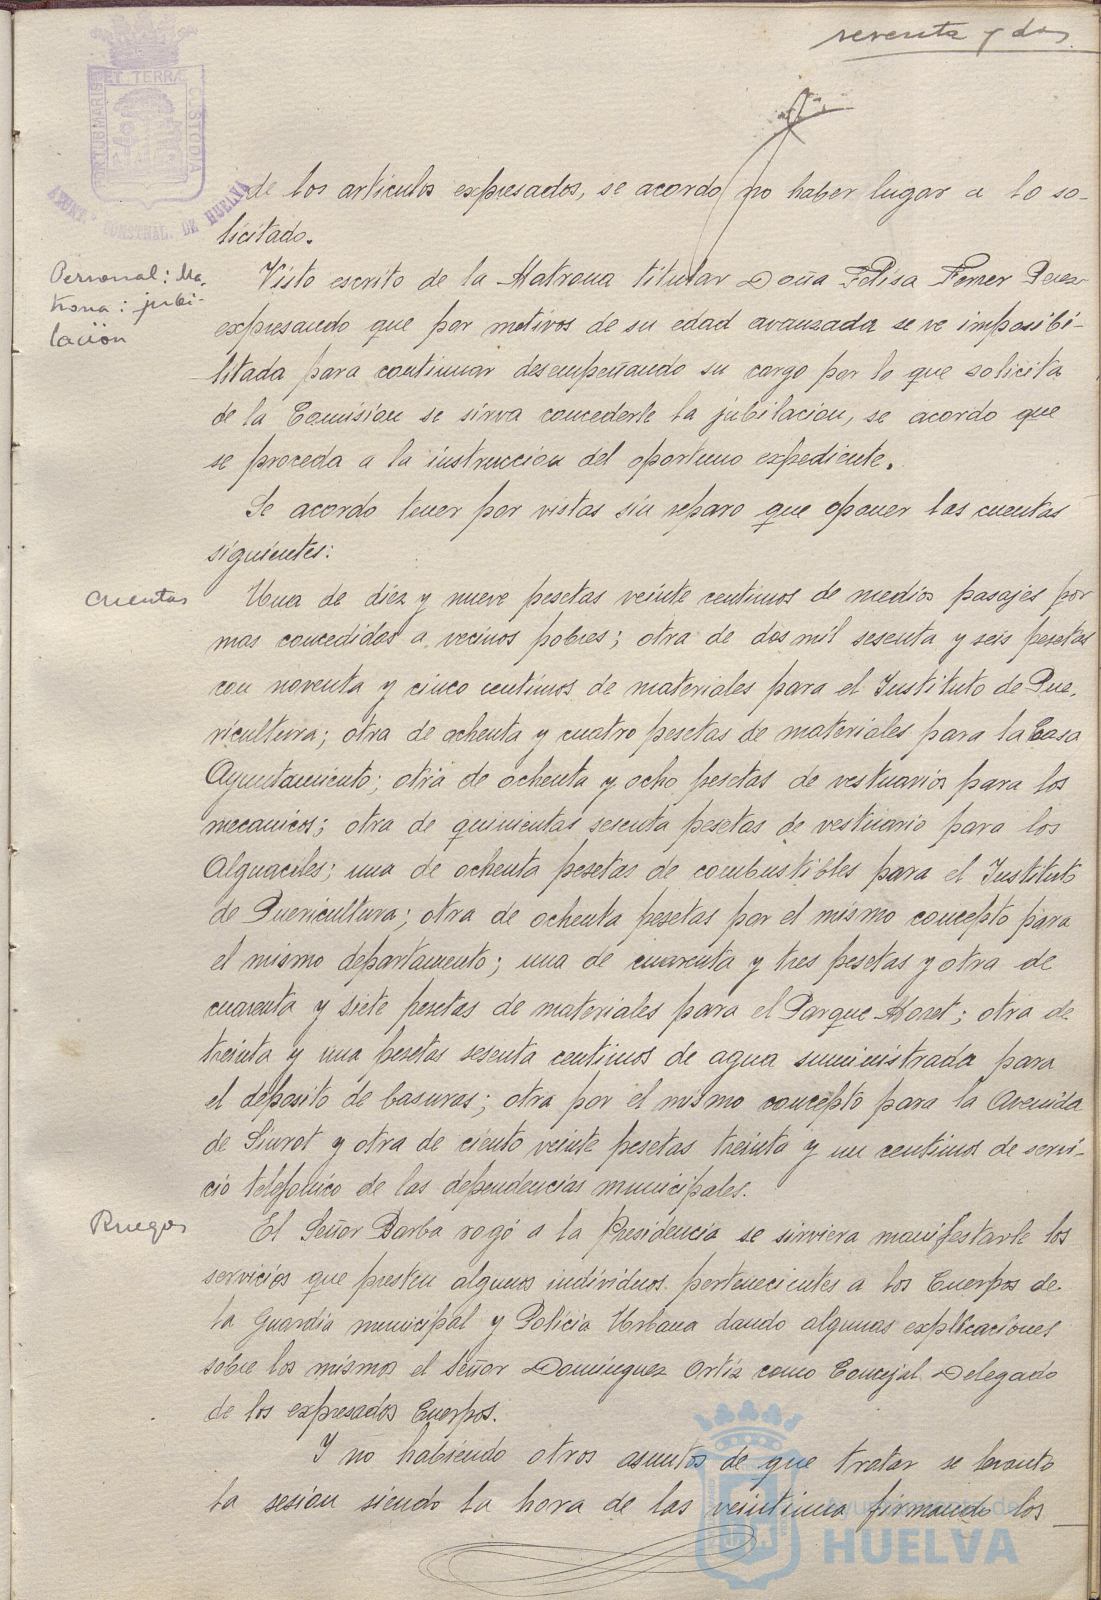 setenta y dos
PORTUS MARIS ET TERRÆ CUSTODIA
AYUNT.º CONSTNAL. DE HUELVA
de los articulos expresados, se acordo no haber lugar a lo so-
licitado.
Personal: Ma-
trona: jubi-
lación
Visto escrito de la Matrona titular Doña Felisa Ferrer Perez
expresando que por motivos de su edad avanzada se ve imposibi-
litada para continuar desempeñando su cargo por lo que solicita
de la Comision se sirva concederle la jubilacion, se acordo que
se proceda a la instruccion del oportuno expediente.
Se acordo tener por vistas sin reparo que oponer las cuentas
siguientes:
Cuentas
Una de diez y nueve pesetas veinte centimos de medios pasajes por
mas concedidos a vecinos pobres; otra de dos mil sesenta y seis pesetas
con noventa y cinco centimos de materiales para el Instituto de Pue-
ricultura; otra de ochenta y cuatro pesetas de materiales para la Casa
Ayuntamiento; otra de ochenta y ocho pesetas de vestuarios para los
mecanicos; otra de quinientas sesenta pesetas de vestuario para los
Alguaciles; una de ochenta pesetas de combustibles para el Instituto
de Puericultura; otra de ochenta pesetas por el mismo concepto para
el mismo departamento; una de cuarenta y tres pesetas y otra de
cuarenta y siete pesetas de materiales para el Parque Moret; otra de
treinta y una pesetas sesenta centimos de agua suministrada para
el deposito de basuras; otra por el mismo concepto para la Avenida
de Siurot y otra de ciento veinte pesetas treinta y un centimos de servi-
cio telefonico de las dependencias municipales.
Ruegos
El Señor Barba rogó a la Presidencia se sirviera manifestarle los
servicios que presten algunos individuos pertenecientes a los Cuerpos de
la Guardia municipal y Policia Urbana dando algunas explicaciones
sobre los mismos el Señor Dominguez Ortiz como Concejal Delegado
de los expresados Cuerpos.
Y no habiendo otros asuntos de que tratar se levanto
la sesion siendo la hora de las veintiuna firmando los
Ayuntamiento de
HUELVA